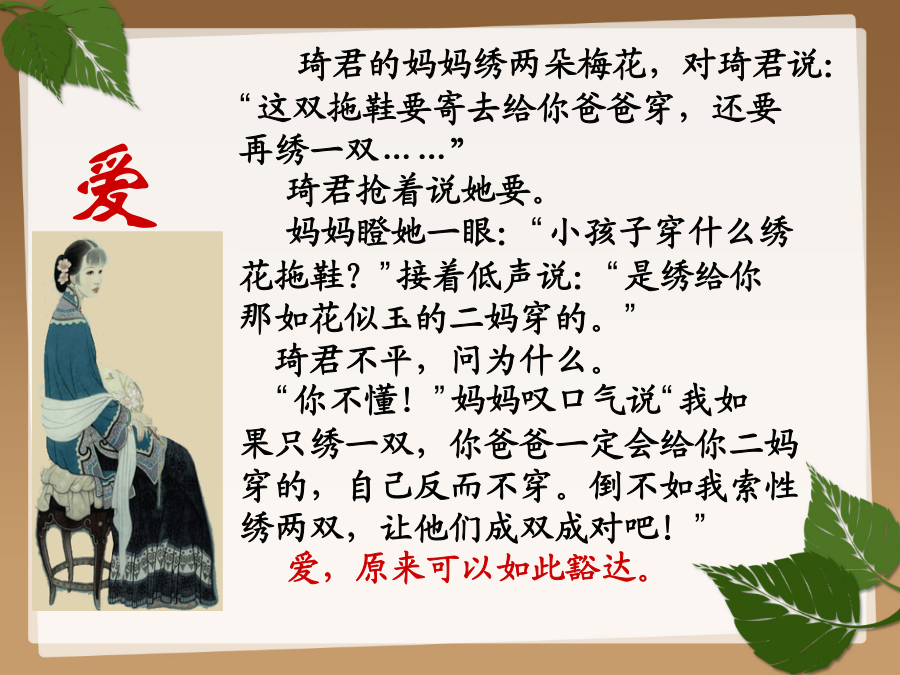 爱
琦君的妈妈绣两朵梅花，对琦君说：
“这双拖鞋要寄去给你爸爸穿，还要
再绣一双……”
琦君抢着说她要。
妈妈瞪她一眼：“小孩子穿什么绣
花拖鞋？”接着低声说：“是绣给你
那如花似玉的二妈穿的。”
琦君不平，问为什么。
“你不懂！”妈妈叹口气说“我如
果只绣一双，你爸爸一定会给你二妈
穿的，自己反而不穿。倒不如我索性
绣两双，让他们成双成对吧！”
爱，原来可以如此豁达。